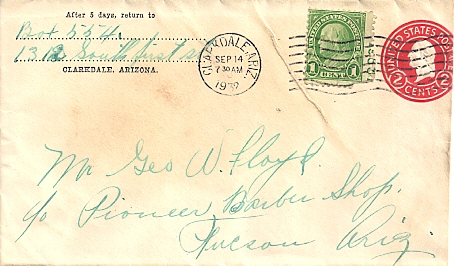 After 5 days, return to
Box 554
1312 South first st
CLARKDALE, ARIZONA.
CLARKDALE, ARIZ.
SEP 14
7 30 AM
1932
1 CENT 1
UNITED STATES POSTAGE
2 CENTS 2
Mr Geo W. Floyd.
c/o Pioneer Barber Shop.
Tucson Ariz